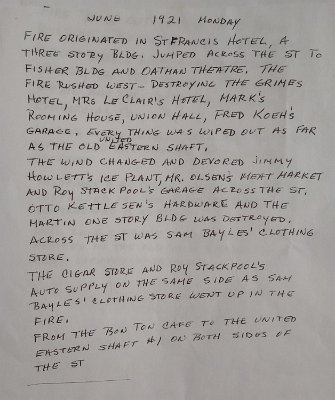 JUNE 1921 MONDAY
FIRE ORIGINATED IN ST FRANCIS HOTEL, A
THREE STORY BLDG. JUMPED ACROSS THE ST TO
FISHER BLDG AND OATMAN THEATRE. THE
FIRE RUSHED WEST - DESTROYING THE GRIMES
HOTEL, MRS LE CLAIR'S HOTEL, MARK'S
ROOMING HOUSE, UNION HALL, FRED KOEH'S
GARAGE. EVERY THING WAS WIPED OUT AS FAR
AS THE OLD UNITED EASTERN SHAFT.
THE WIND CHANGED AND DEVORED JIMMY
HOWLETT'S ICE PLANT, MR. OLSEN'S MEAT MARKET
AND ROY STACKPOOL'S GARAGE ACROSS THE ST.
OTTO KETTLESEN'S HARDWARE AND THE
MARTIN ONE STORY BLDG WAS DESTROYED.
ACROSS THE ST WAS SAM BAYLES' CLOTHING
STORE.
THE CIGAR STORE AND ROY STACKPOOL'S
AUTO SUPPLY ON THE SAME SIDE AS SAM
BAYLES' CLOTHING STORE WENT UP IN THE
FIRE.
FROM THE BON TON CAFE TO THE UNITED
EASTERN SHAFT #1 ON BOTH SIDES OF
THE ST